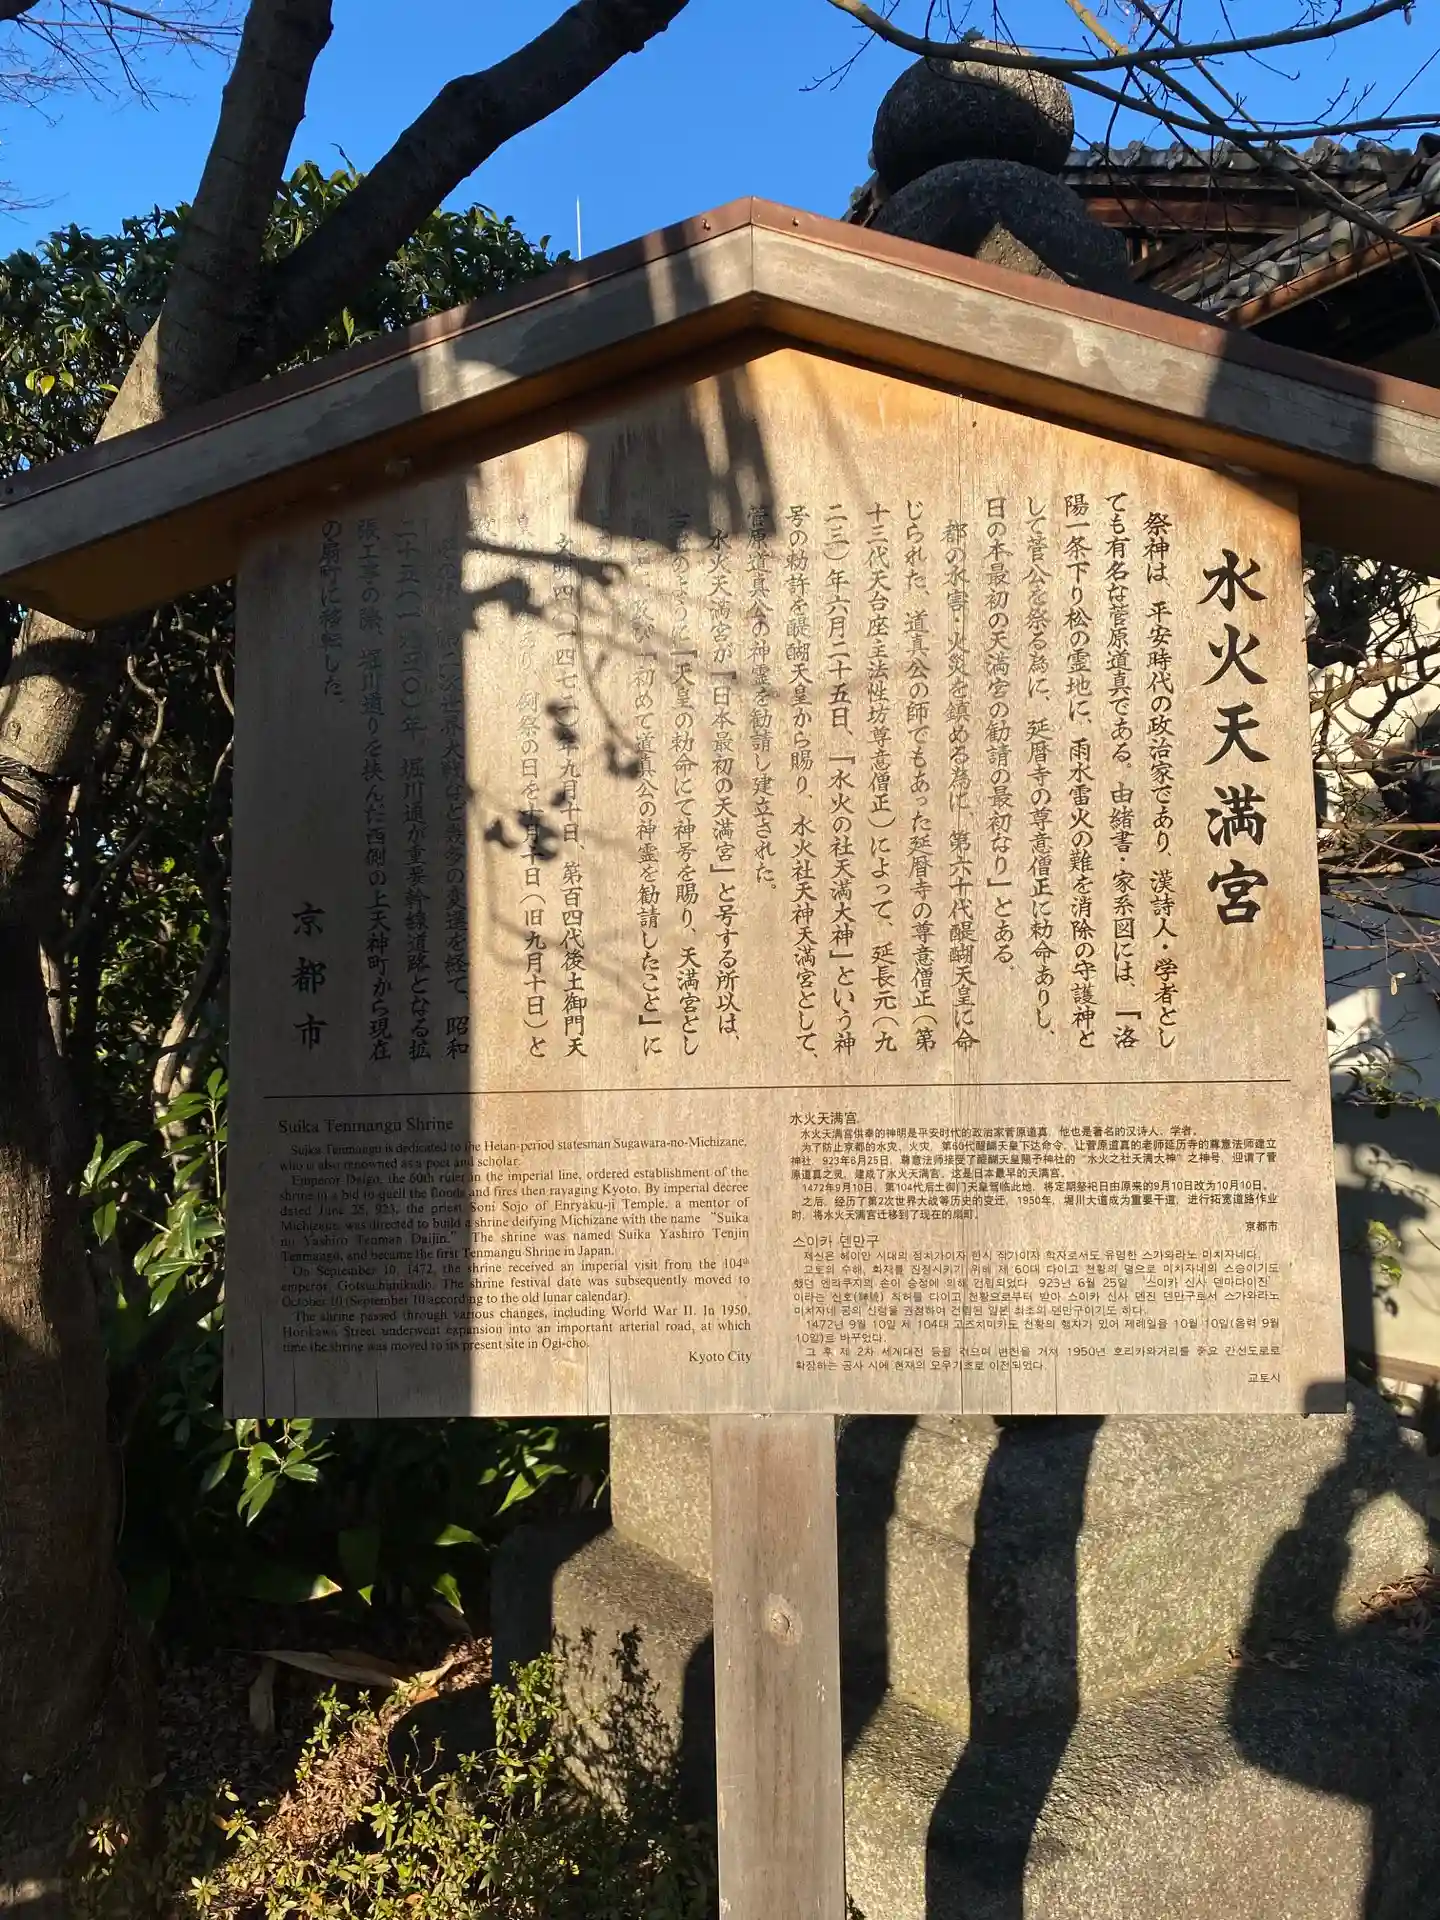 水火天満宮
祭神は、平安時代の政治家であり、漢詩人・学者とし
ても有名な菅原道真である。由緒書・家系図には、『洛
陽一条下り松の霊地に、雨水雷火の難を消除の守護神と
して菅公を祭る為に、延暦寺の尊意僧正に勅命ありし、
日の本最初の天満宮の勧請の最初なり』とある。
都の水害・火災を鎮める為に、第六十代醍醐天皇に命
じられた、道真公の師でもあった延暦寺の尊意僧正(第
十三代天台座主法性坊尊意僧正)によって、延長元(九
二三)年六月二十五日、『水火の社天満大神』という神
号の勅許を醍醐天皇から賜り、水火社天神天満宮として、
菅原道真公の神霊を勧請し建立された。
水火天満宮が『日本最初の天満宮』と号する所以は、
のように『天皇の勅命にて神号を賜り、天満宮とし
及び『初めて道真公の神霊を勧請したこと』に
文明四(一四七二)年九月十日、第百四代後土御門天
あり、例祭の日を十月十日(旧九月十日)と
第二次世界大戦など幾多の変遷を経て、昭和
二十五(一九五〇)年、堀川通が重要幹線道路となる拡
張工事の際、堀川通りを挟んだ西側の上天神町から現在
の扇町に移転した。
京都市
Suika Tenmangu Shrine
Suika Tenmangu is dedicated to the Heian-period statesman Sugawara-no-Michizane,
who is also renowned as a poet and scholar.
Emperor Daigo, the 60th ruler in the imperial line, ordered establishment of the
shrine in a bid to quell the floods and fires then ravaging Kyoto. By imperial decree
dated June 25, 923, the priest Soni Sojo of Enryaku-ji Temple, a mentor of
Michizane, was directed to build a shrine deifying Michizane with the name “Suika
no Yashiro Tenman Daijin.” The shrine was named Suika Yashiro Tenjin
Tenmangu, and became the first Tenmangu Shrine in Japan.
On September 10, 1472, the shrine received an imperial visit from the 104th
emperor, Gotsuchimikado. The shrine festival date was subsequently moved to
October 10 (September 10 according to the old lunar calendar).
The shrine passed through various changes, including World War II. In 1950,
Horikawa Street underwent expansion into an important arterial road, at which
time the shrine was moved to its present site in Ogi-cho.
Kyoto City
水火天满宫
水火天满宫供奉的神明是平安时代的政治家菅原道真。他也是著名的汉诗人、学者。
为了防止京都的水灾、火灾，第60代醍醐天皇下达命令，让菅原道真的老师延历寺的尊意法师建立
神社。923年6月25日，尊意法师接受了醍醐天皇赐予神社的“水火之社天满大神”之神号，迎请了菅
原道真之灵，建成了水火天满宫。这是日本最早的天满宫。
1472年9月10日，第104代后土御门天皇驾临此地，将定期祭祀日由原来的9月10日改为10月10日。
之后，经历了第2次世界大战等历史的变迁，1950年，堀川大道成为重要干道，进行拓宽道路作业
时，将水火天满宫迁移到了现在的扇町。
京都市
스이카 덴만구
제신은 헤이안 시대의 정치가이자 한시 작가이자 학자로서도 유명한 스가와라노 미치자네다.
교토의 수해, 화재를 진정시키기 위해 제 60대 다이고 천황의 명으로 미치자네의 스승이기도
했던 엔랴쿠지의 손이 승정에 의해 건립되었다. 923년 6월 25일 '스이카 신사 덴마다이진'
이라는 신호(神號) 칙허를 다이고 천황으로부터 받아 스이카 신사 덴진 덴만구로서 스가와라노
미치자네 공의 신령을 권청하여 건립된 일본 최초의 덴만구이기도 하다.
1472년 9월 10일 제 104대 고즈치미카도 천황의 행차가 있어 제례일을 10월 10일(음력 9월
10일)로 바꾸었다.
그 후 제 2차 세계대전 등을 겪으며 변천을 거쳐 1950년 호리카와거리를 중요 간선도로로
확장하는 공사 시에 현재의 오우기초로 이전되었다.
교토시